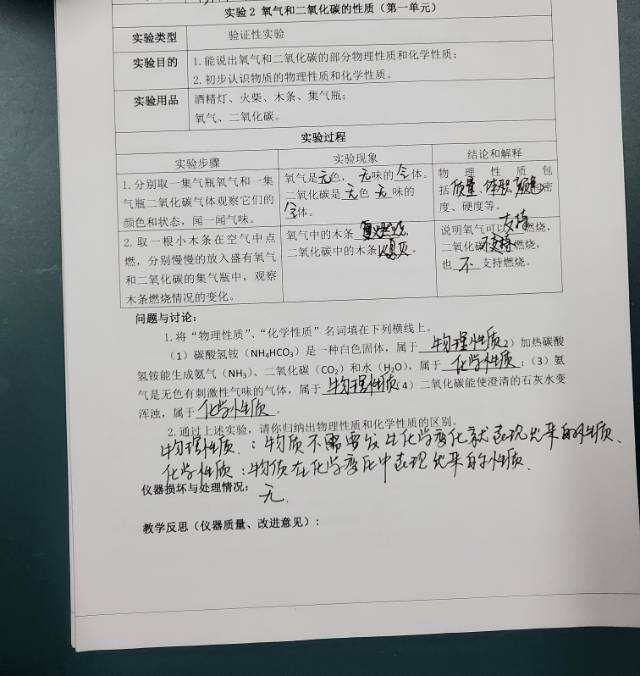 实验2 氧气和二氧化碳的性质（第一单元）
实验类型 验证性实验
实验目的 1.能说出氧气和二氧化碳的部分物理性质和化学性质；
2.初步认识物质的物理性质和化学性质。
实验用品 酒精灯、火柴、木条、集气瓶；
氧气、二氧化碳。
实验过程
实验步骤 实验现象 结论和解释
1.分别取一集气瓶氧气和一集
气瓶二氧化碳气体观察它们的
颜色和状态，闻一闻气味。
氧气是无色，无味的气体。
二氧化碳是无色无味的
气体。
物理性质包
括质量、体积、颜色、密
度、硬度等。
2.取一根小木条在空气中点
燃，分别慢慢的放入盛有氧气
和二氧化碳的集气瓶中，观察
木条燃烧情况的变化。
氧气中的木条
二氧化碳中的木条熄灭
说明氧气可以支持燃烧，
二氧化碳不支持燃烧，
也不支持燃烧。
问题与讨论：
1.将“物理性质”、“化学性质”名词填在下列横线上。
（1）碳酸氢铵（NH₄HCO₃）是一种白色固体，属于物理性质2）加热碳酸
氢铵能生成氨气（NH₃）、二氧化碳（CO₂）和水（H₂O），属于化学性质；（3）氨
气是无色有刺激性气味的气体，属于物理性质4）二氧化碳能使澄清的石灰水变
浑浊，属于化学性质。
2.通过上述实验，请你归纳出物理性质和化学性质的区别。
物理性质：物质不需要发生化学变化就表现出来的性质、
化学性质：物质在化学变化中表现出来的性质.
仪器损坏与处理情况：
无.
教学反思（仪器质量、改进意见）：